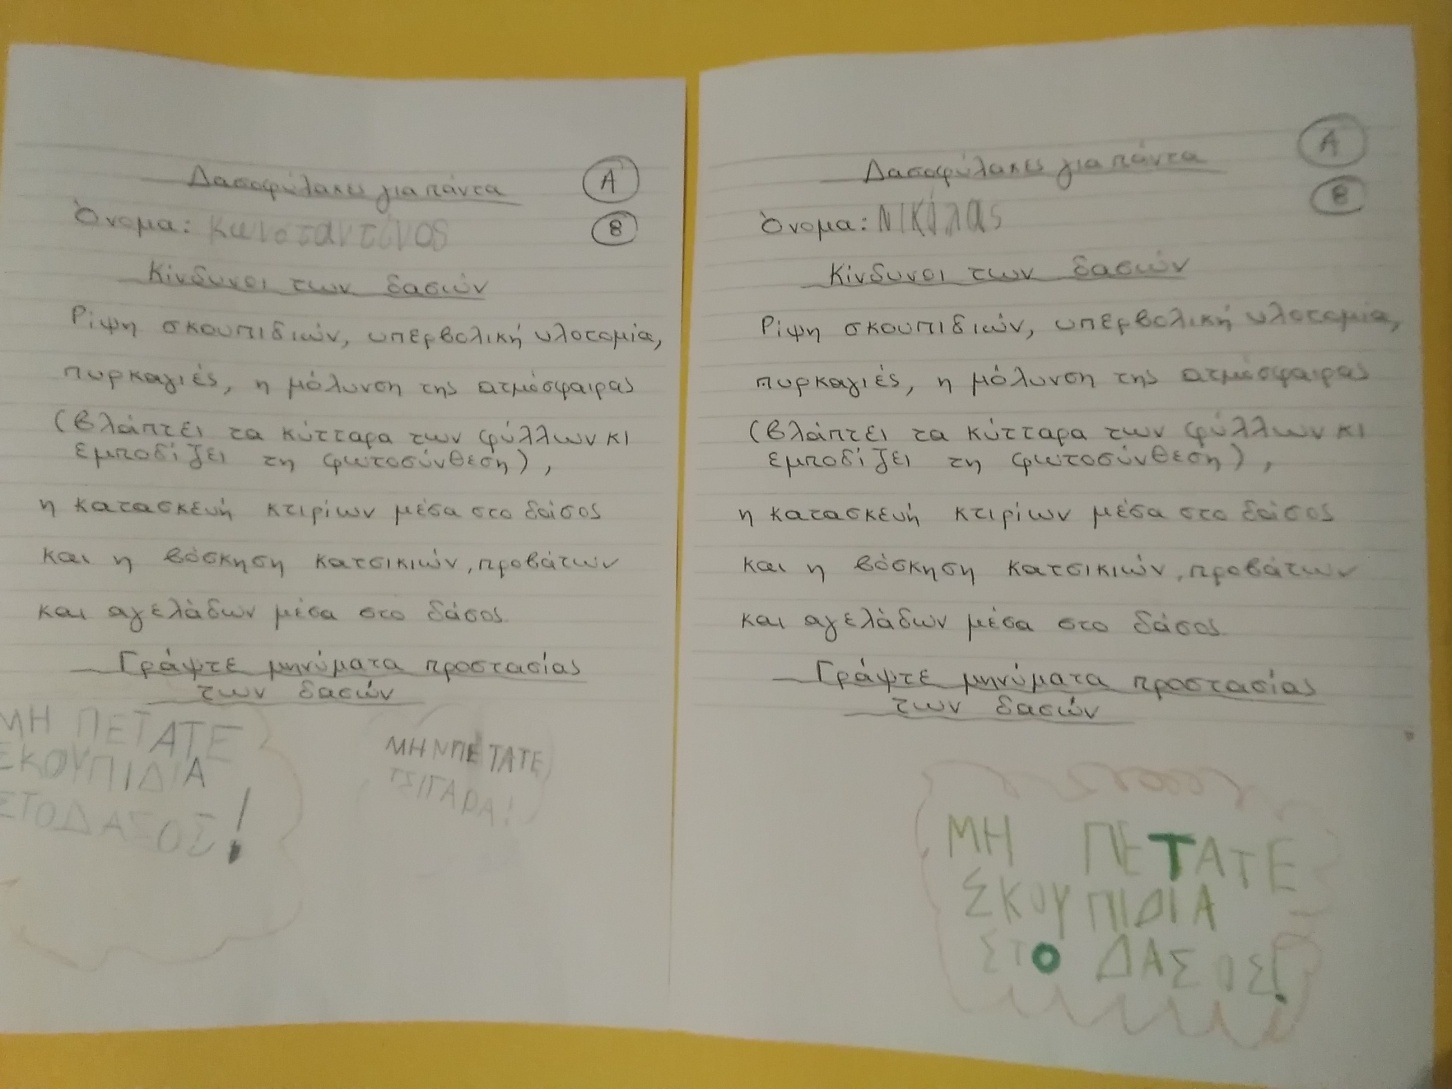 Δασοφύλακες για πάντα
Α
Όνομα: Κωνσταντίνος
Β
Κίνδυνοι των δασών
Ρίψη σκουπιδιών, υπερβολική υλοτομία,
πυρκαγιές, η μόλυνση της ατμόσφαιρας
(βλάπτει τα κύτταρα των φύλλων κι
εμποδίζει τη φωτοσύνθεση),
η κατασκευή κτιρίων μέσα στο δάσος
και η βόσκηση κατσικιών, προβάτων
και αγελάδων μέσα στο δάσος.
Γράψτε μηνύματα προστασίας
των δασών
ΜΗ ΠΕΤΑΤΕ
ΣΚΟΥΠΙΔΙΑ
ΣΤΟ ΔΑΣΟΣ!
ΜΗΝ ΠΕΤΑΤΕ
ΤΣΙΓΑΡΑ!
Δασοφύλακες για πάντα
Α
Όνομα: Νικόλας
Β
Κίνδυνοι των δασών
Ρίψη σκουπιδιών, υπερβολική υλοτομία,
πυρκαγιές, η μόλυνση της ατμόσφαιρας
(βλάπτει τα κύτταρα των φύλλων κι
εμποδίζει τη φωτοσύνθεση),
η κατασκευή κτιρίων μέσα στο δάσος
και η βόσκηση κατσικιών, προβάτων
και αγελάδων μέσα στο δάσος.
Γράψτε μηνύματα προστασίας
των δασών
ΜΗ ΠΕΤΑΤΕ
ΣΚΟΥΠΙΔΙΑ
ΣΤΟ ΔΑΣΟΣ!